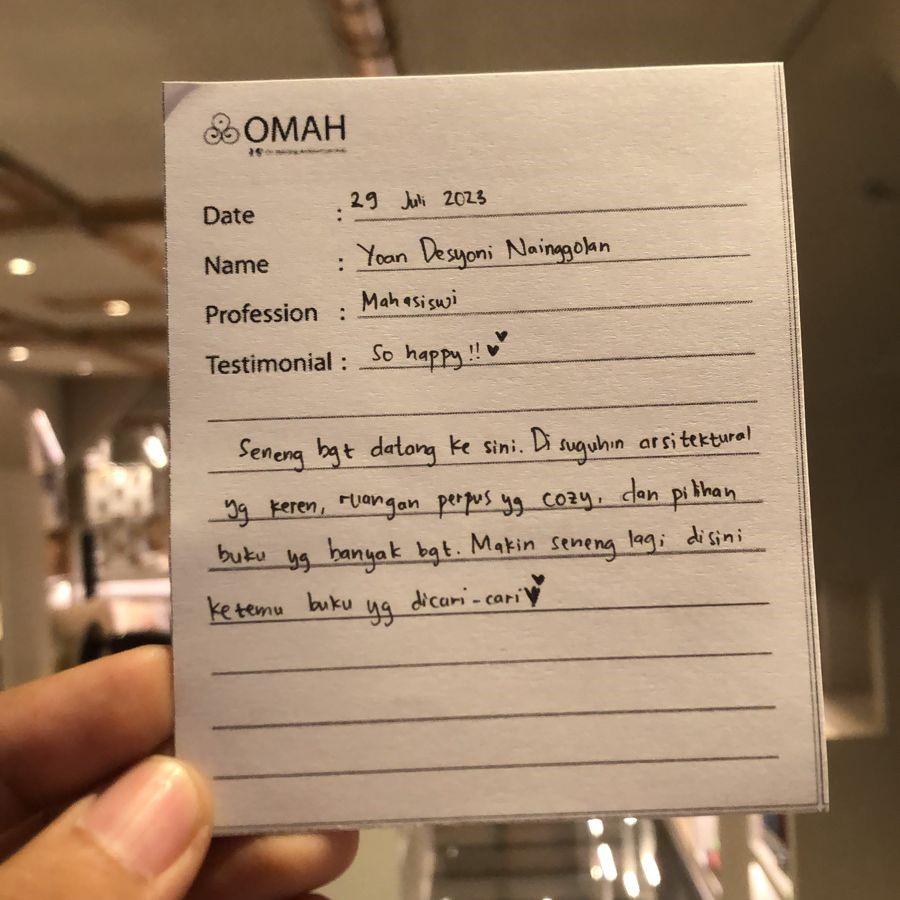 OMAH
Date : 29 Juli 2023
Name : Yoan Desyoni Nainggolan
Profession : Mahasiswi
Testimonial : So happy!!
Seneng bgt datang ke sini. Disuguhin arsitektural
yg keren, ruangan perpus yg cozy, dan pilihan
buku yg banyak bgt. Makin seneng lagi disini
ketemu buku yg dicari-cari